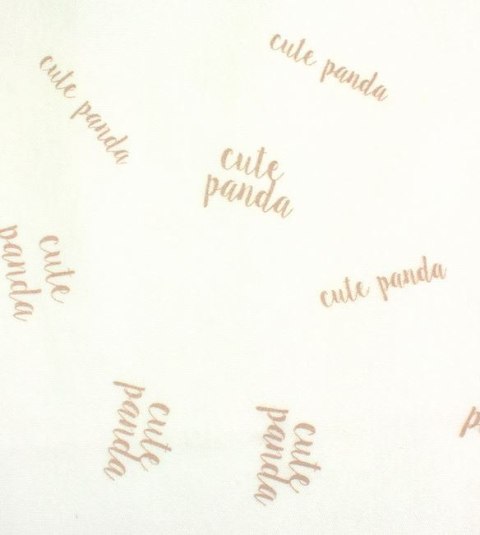 cute panda
cute panda
cute
panda
cute
panda
cute panda
cute
panda
cute
panda